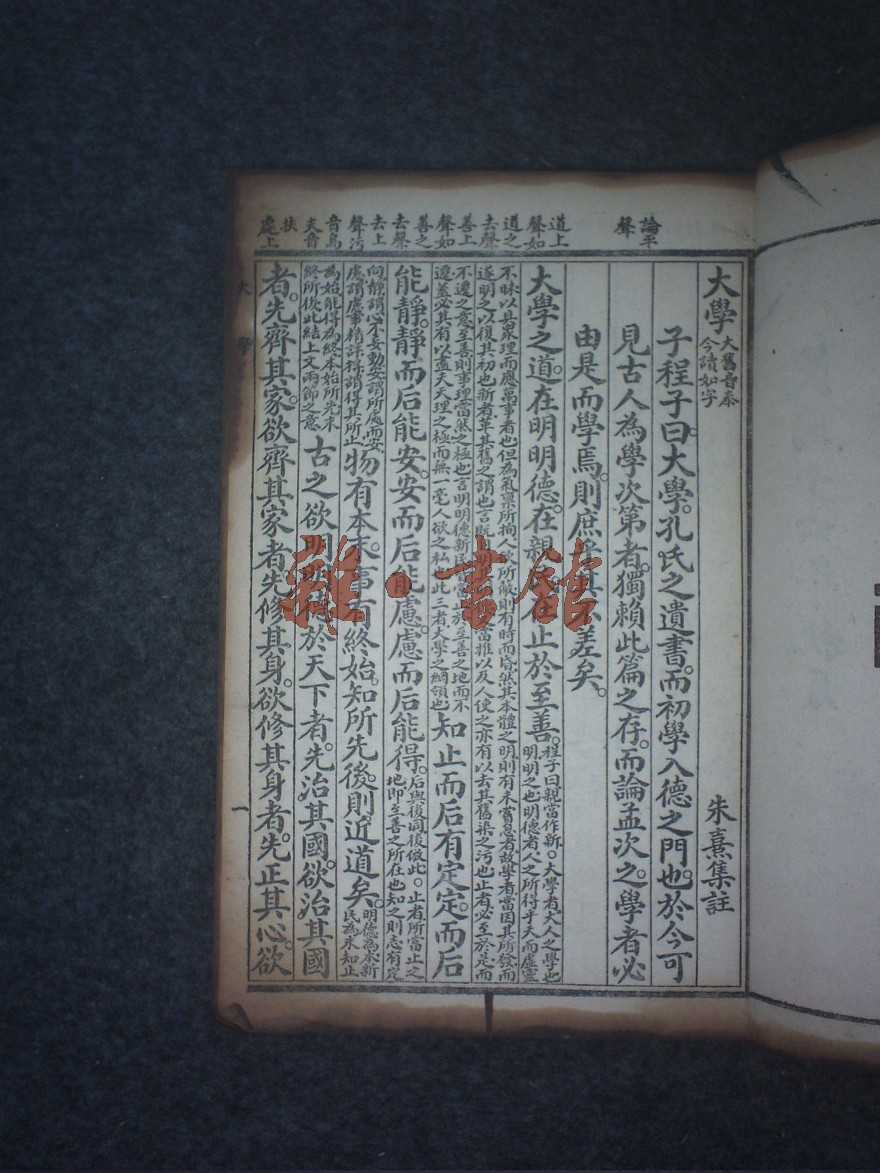 論平
聲
道上
聲如
道之
去聲
善上
聲如
善之
去聲
去上
聲污
音烏
夫音
扶
處上
大學 大舊音泰今讀如字 朱熹集註
子程子曰。大學。孔氏之遺書。而初學入德之門也。於今可
見古人為學次第者。獨賴此篇之存。而論孟次之。學者必
由是而學焉。則庶其不差矣。
大學之道。在明明德。在親民在止於至善。程子曰親當作新。大學者大人之學也明明之也明德者人之所得乎天而虛靈
不昧以具眾理而應萬事者也但為氣稟所拘所蔽則有時而昏然其本體之明則有未嘗息者故學者當因其所發而
遂明之以復其初也新者革其舊之謂也言既當推以及人使之亦有以去其舊染之污也止者必至於是而
不遷之意至善則事理當然之極也言明明德新民當止於至善之地而不
遷蓋必其有以盡夫天理之極而無一毫人欲之私也此三者大學之綱領也 知止而后有定。定而后
能靜。靜而后能安。安而后能慮。慮而后能得。后與後同後倣此。止者所當止之地即至善之所在也知之則志有定
向靜謂心不妄動安謂所處而安
慮謂處事精詳得謂得其所止 物有本末。事有終始。知所先後。則近道矣。明德為本新民為末知止
為始能得為終本始所先末
終所後此結上文兩節之意 古之欲明明德於天下者。先治其國。欲治其國
者。先齊其家。欲齊其家者。先修其身。欲修其身者。先正其心。欲
大學
一
雜·書館